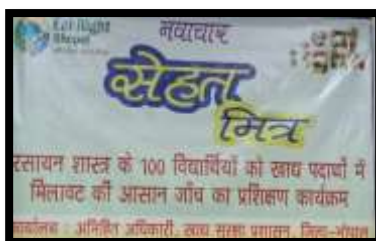 Eat Right
Bhopal
नवाचार
सेहत
मित्र
रसायन शास्त्र के 100 विद्यार्थियों को खाद्य पदार्थों में
मिलावट की आसान जाँच का प्रशिक्षण कार्यक्रम
कार्यालय : अभिहित अधिकारी, खाद्य सुरक्षा प्रशासन, जिला-भोपाल